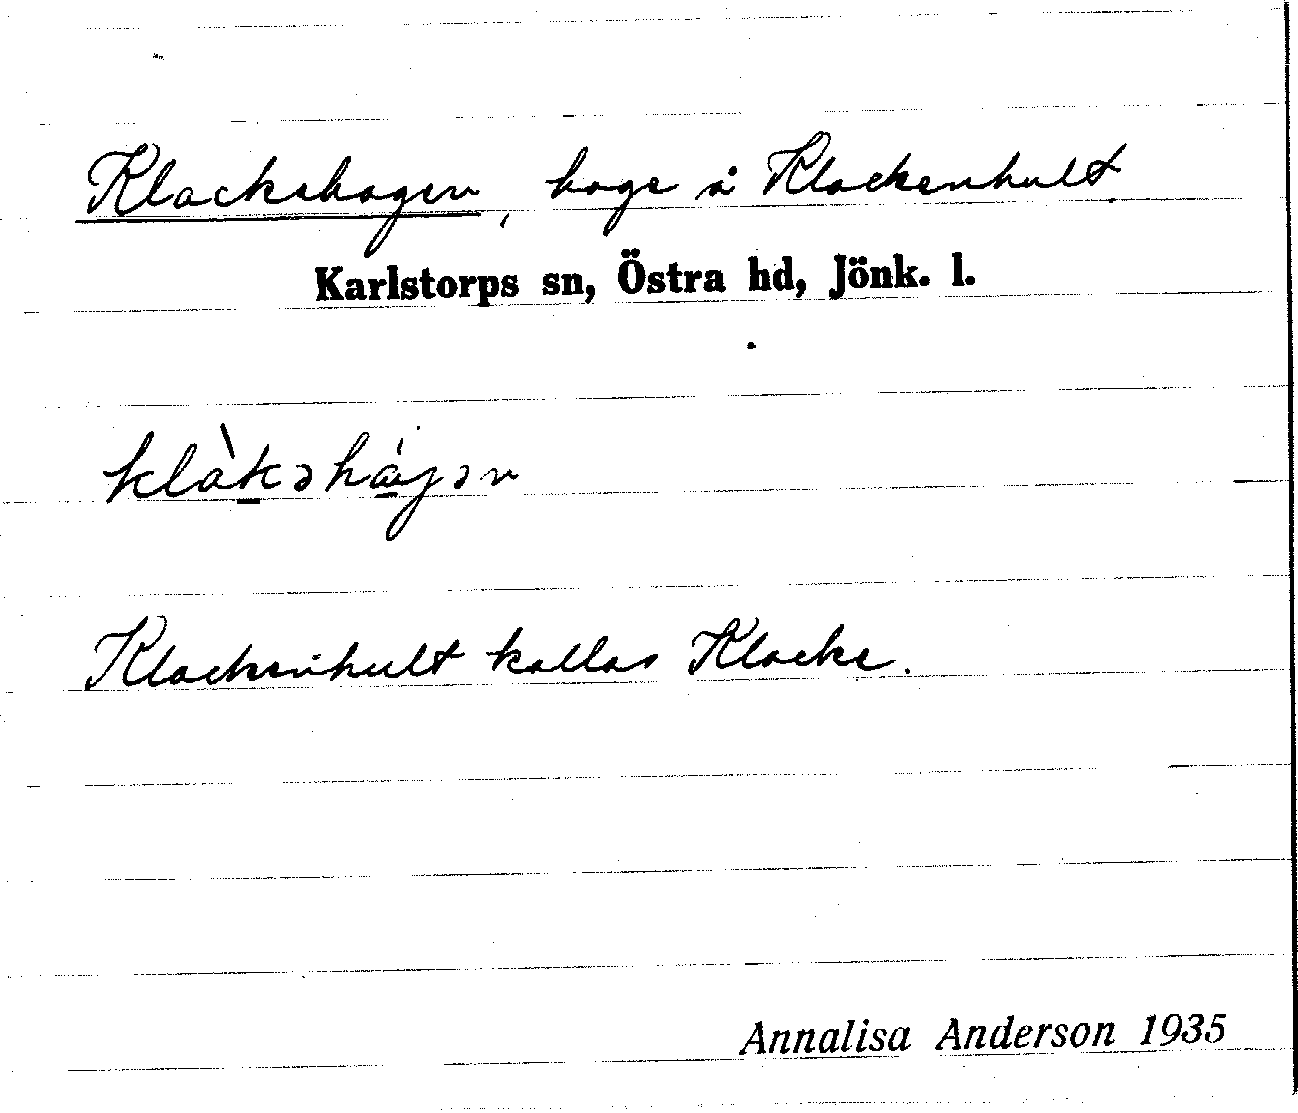 Klackehagen, hage å Klackenhult.
Karlstorps sn, Östra hd, Jönk. l.
klàkəhájən
Klackenhult kallas Klacke.
Annalisa Anderson 1935